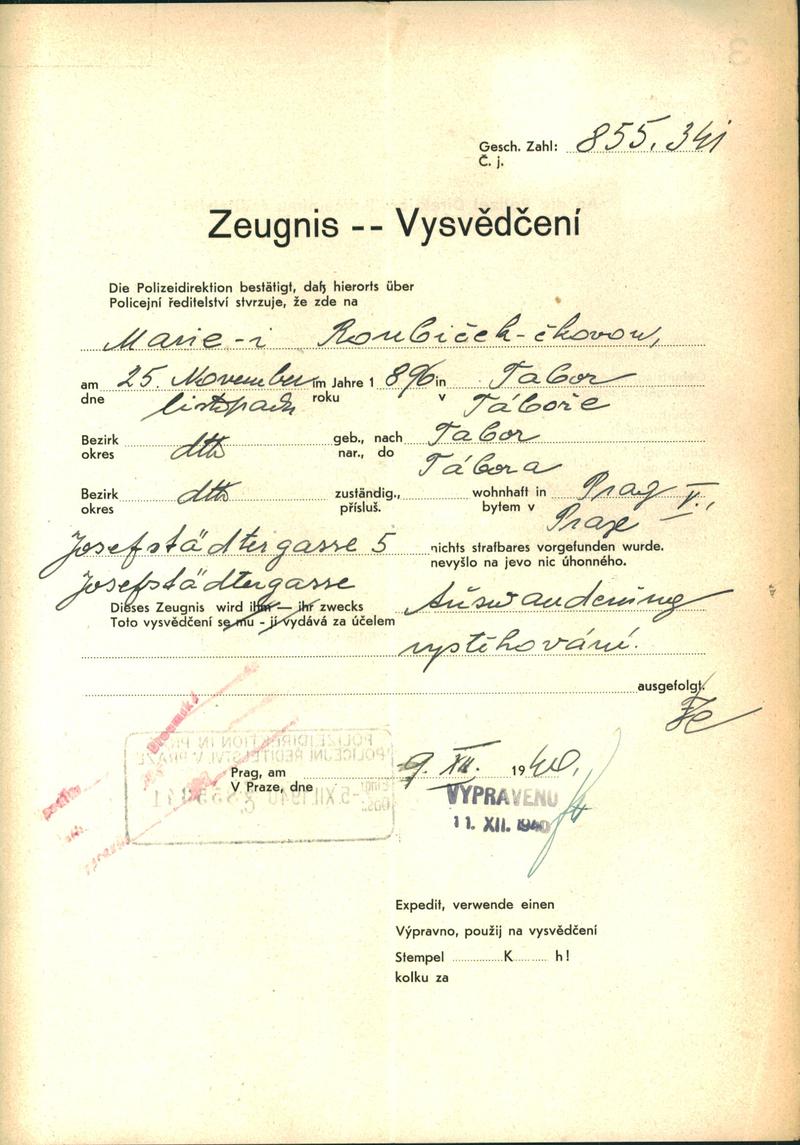 Gesch. Zahl: 855.341
Č. j.
Zeugnis -- Vysvědčení
Die Polizeidirektion bestätigt, daß hierorts über
Policejní ředitelství stvrzuje, že zde na
Marie-i Roubiček-čkovou,
am 25. November im Jahre 1 896 in Tabor
dne listopadu roku v Táboře
Bezirk dtto geb., nach Tabor
okres nar., do Tábora
Bezirk dtto zuständig., wohnhaft in Prag V.,
okres přísluš. bytem v Praze
Josefstädtergasse 5 nichts strafbares vorgefunden wurde.
nevyšlo na jevo nic úhonného.
Josefstädtergasse
Dieses Zeugnis wird ihm — ihr zwecks Auswanderung
Toto vysvědčení se mu - jí vydává za účelem
vystěhování.
ausgefolgt.
POLIZEIDIREKTION IN PR
POLICEJNÍ ŘEDITELSTVÍ V PRAZE
Prag, am 9. XII. 1940.
V Praze, dne
5. XII. 1940
VYPRAVENO
11. XII. 1940
Expedit, verwende einen
Výpravno, použij na vysvědčení
Stempel K h!
kolku za